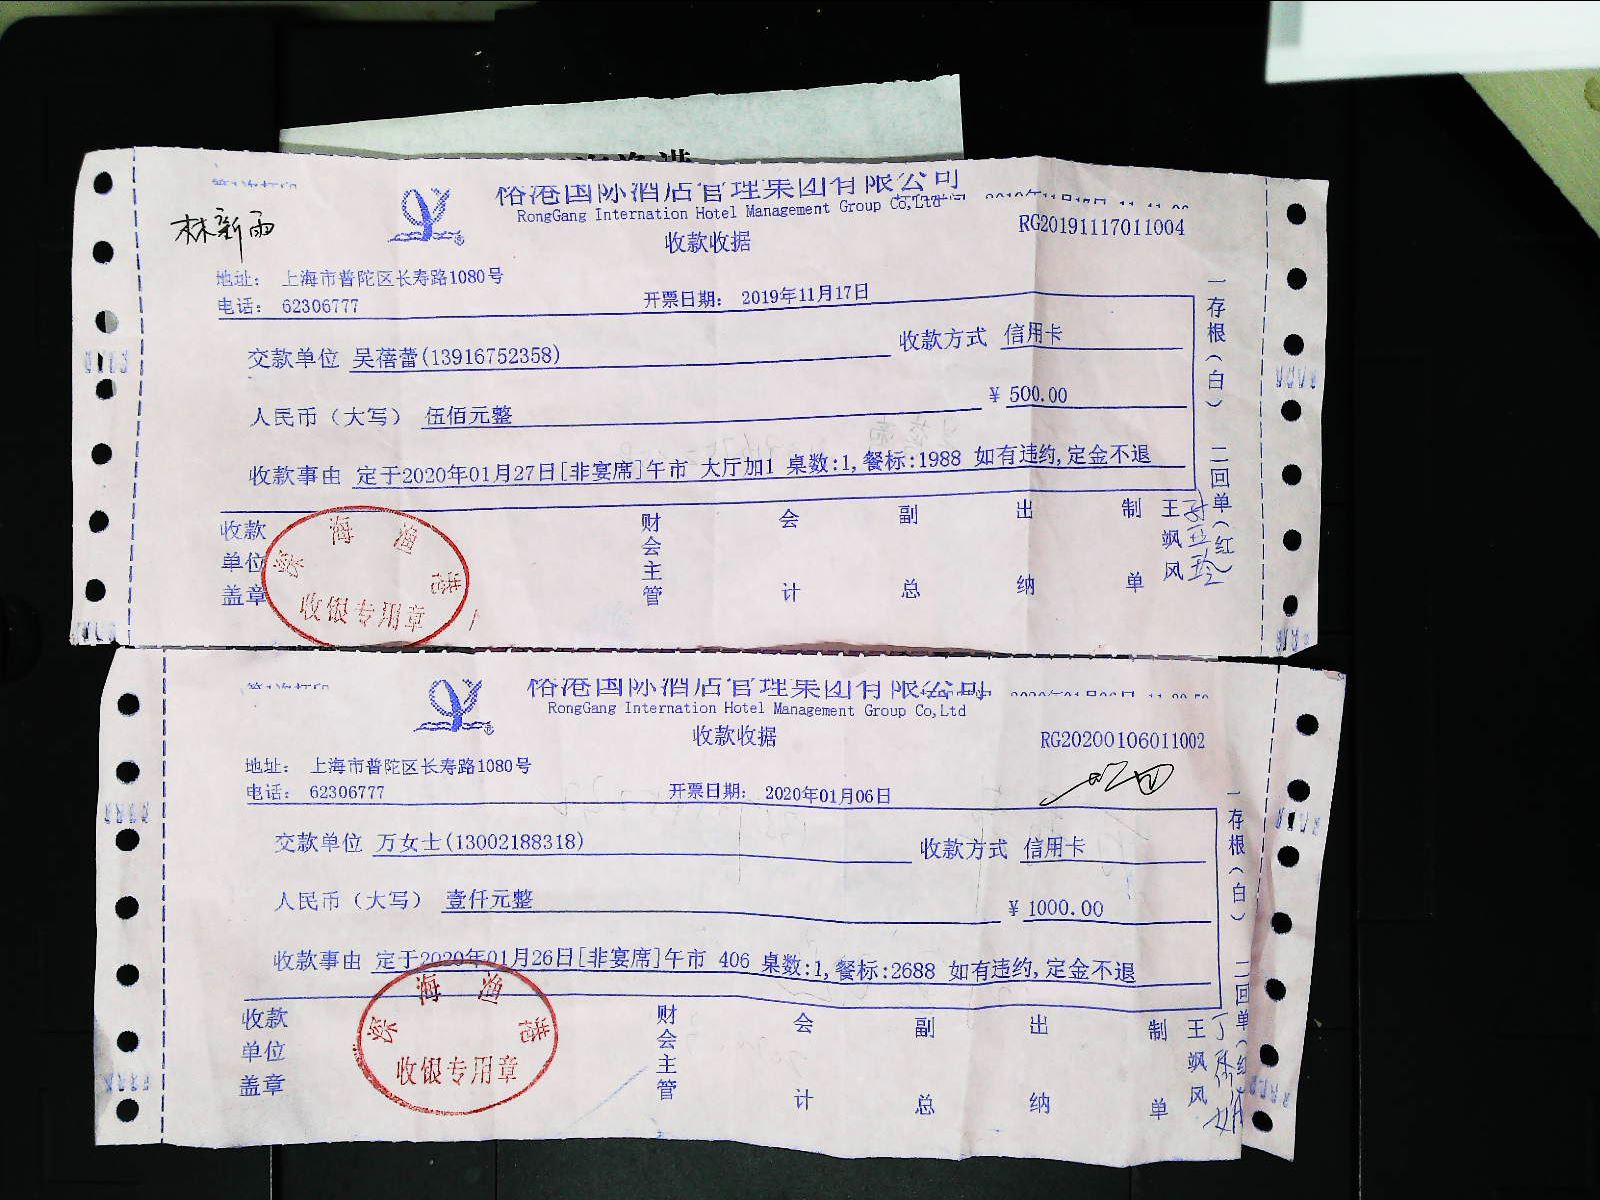 林新雨
裕港国际酒店管理集团有限公司
RongGang Internation Hotel Management Group Co,Ltd
收款收据
RG20191117011004
地址： 上海市普陀区长寿路1080号
电话： 62306777
开票日期： 2019年11月17日
交款单位 吴蓓蕾(13916752358)
收款方式 信用卡
人民币（大写） 伍佰元整
¥ 500.00
收款事由 定于2020年01月27日[非宴席]午市 大厅加1 桌数:1,餐标:1988 如有违约,定金不退
一存根(白) 二回单(红)
收款单位盖章
财会主管
会计
副总
出纳
制单
王飒风
深海渔港
收银专用章
裕港国际酒店管理集团有限公司
RongGang Internation Hotel Management Group Co,Ltd
收款收据
RG20200106011002
地址： 上海市普陀区长寿路1080号
电话： 62306777
开票日期： 2020年01月06日
交款单位 万女士(13002188318)
收款方式 信用卡
人民币（大写） 壹仟元整
¥ 1000.00
收款事由 定于2020年01月26日[非宴席]午市 406 桌数:1,餐标:2688 如有违约,定金不退
一存根(白) 二回单(红)
收款单位盖章
财会主管
会计
副总
出纳
制单
王飒风
深海渔港
收银专用章